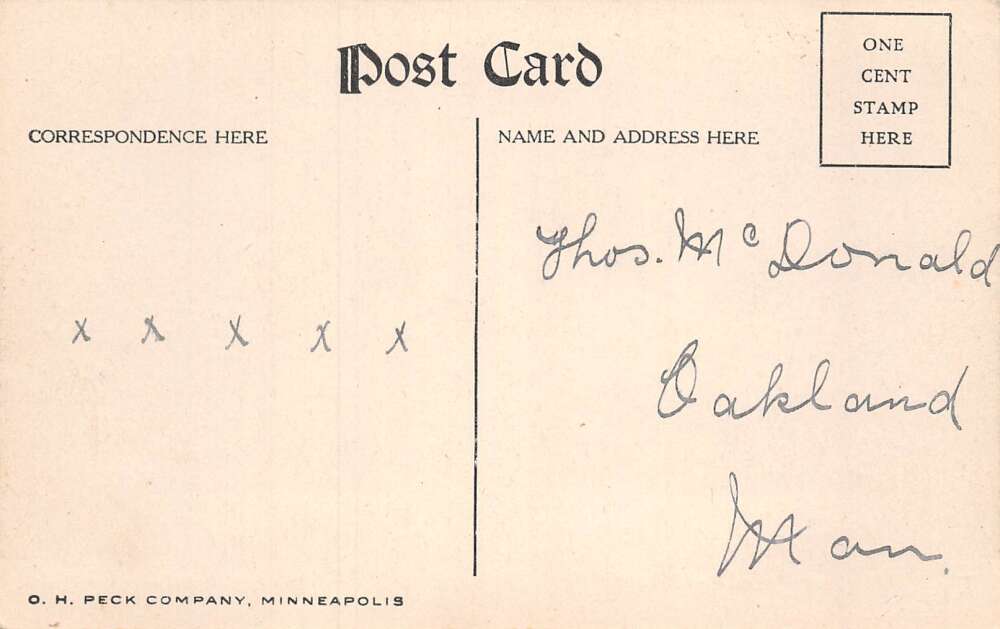 Post Card
ONE
CENT
STAMP
HERE
CORRESPONDENCE HERE
NAME AND ADDRESS HERE
Thos. Mc Donald
x x x x x
Oakland
Man.
O. H. PECK COMPANY, MINNEAPOLIS